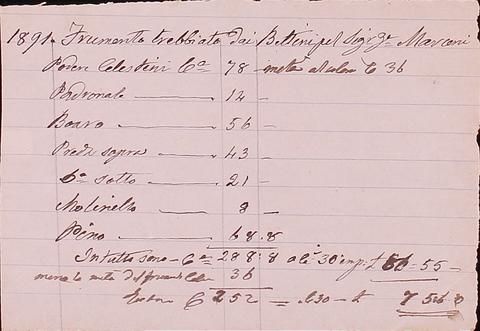 1891. Frumento trebbiato dai Bettini pel Sigr Gr Marconi
Podere Celestini Ca 78 — metà al colono C 36
Padronale — 12 —
Boaro — 56 —
Preda sopra — 43 —
sotto — 21 —
Molinello — 8 —
Pino — 68.8
In tutto sono — Ca 288:8 a 30
meno la metà del 36
C 252 — 30 — £ 756